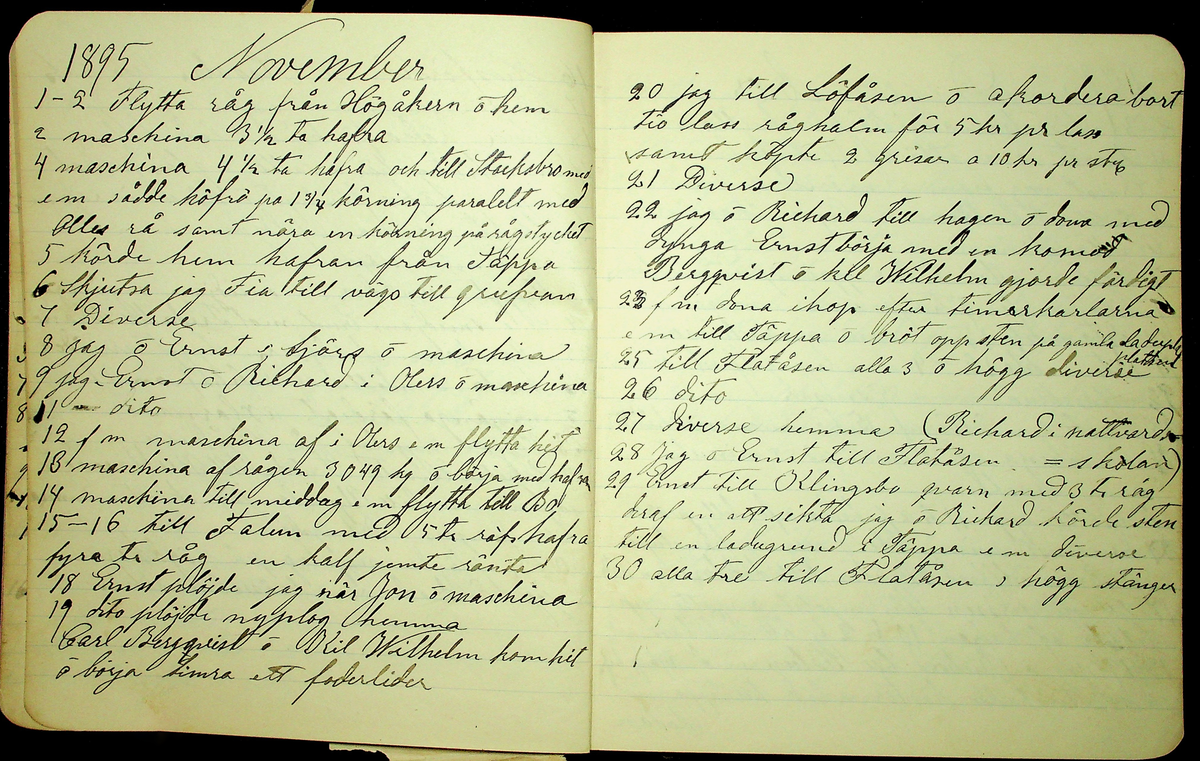 1895 November
1-2 Flytta råg från Högåkern ō hem
2 maschina 3½ ta hafra
4 maschina 4½ ta hafra och till med
e m sådde höfrö på 1¾ körning paralelt med
Olles rå samt nära en körning på rågstycket
5 körde hem hafran från Täppa
6 Skjutsa jag Fia till vägs till
7 Diverse
8 jag ō Ernst ō maschina
9 jag Ernst ō Richard i Olers ō maschina
11 — dito
12 f m maschina af i Olers e m flytta hit
13 maschina af rågen 3049 kg ō börja med hafra
14 maschina till meddag e m flytta till Bo
15-16 till Falun med 5 tr hafra
fyra tr råg en half jemte ränta
18 Ernst plöjde jag när Jon ō maschina
19 dito plöjde nyplog hemma
Carl Bergqvist ō Wilhelm kom hit
ō börja timra ett foderlider
20 jag till Löfåsen ō akordera bort
tio lass råghalm för 5 kr pr lass
samt köpte 2 grisar a 10 kr pr styc
21 Diverse
22 jag ō Richard till hagen ō dona med
Ljunga Ernst börja med en
Bergqvist ō Wilhelm gjorde färdigt
23 f m dona ihop efter timerkarlarna
e m till Täppa ō bröt opp sten på gamla
25 till Flatåsen alla 3 ō högg diverse
26 dito
27 diverse hemma (Richard i nattvards-
28 Jag ō Ernst till Flatåsen. = skolan)
29 Ernst till Klingsbo qvarn med 3 tr råg
draf en att sikta jag ō Richard körde sten
till en ladugrund i Täppa e m diverse
30 alla tre till Flatåsen ō högg stänger